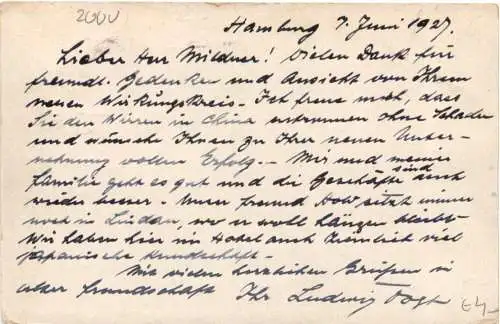 2000
Hamburg 7. Juni 1927.
Lieber Herr Mildner! Vielen Dank für
freundl. Gedenken und Ansicht von Ihrem
neuen Wirkungskreis. Ich freue mich, dass
Sie den Wirren in China entronnen ohne Schaden
und wünsche Ihnen zu Ihrer neuen Unter-
nehmung vollen Erfolg. – Mir und meiner
Familie geht es gut und die Geschäfte sind auch
wieder besser. – Unser Freund sitzt immer
noch in Lindau, wo er wohl hängen bleibt.
Wir haben hier im Hotel auch ziemlich viel
japanische Kundschaft. –
Mit vielen herzlichen Grüßen in
alter Freundschaft Ihr Ludwig Vogt